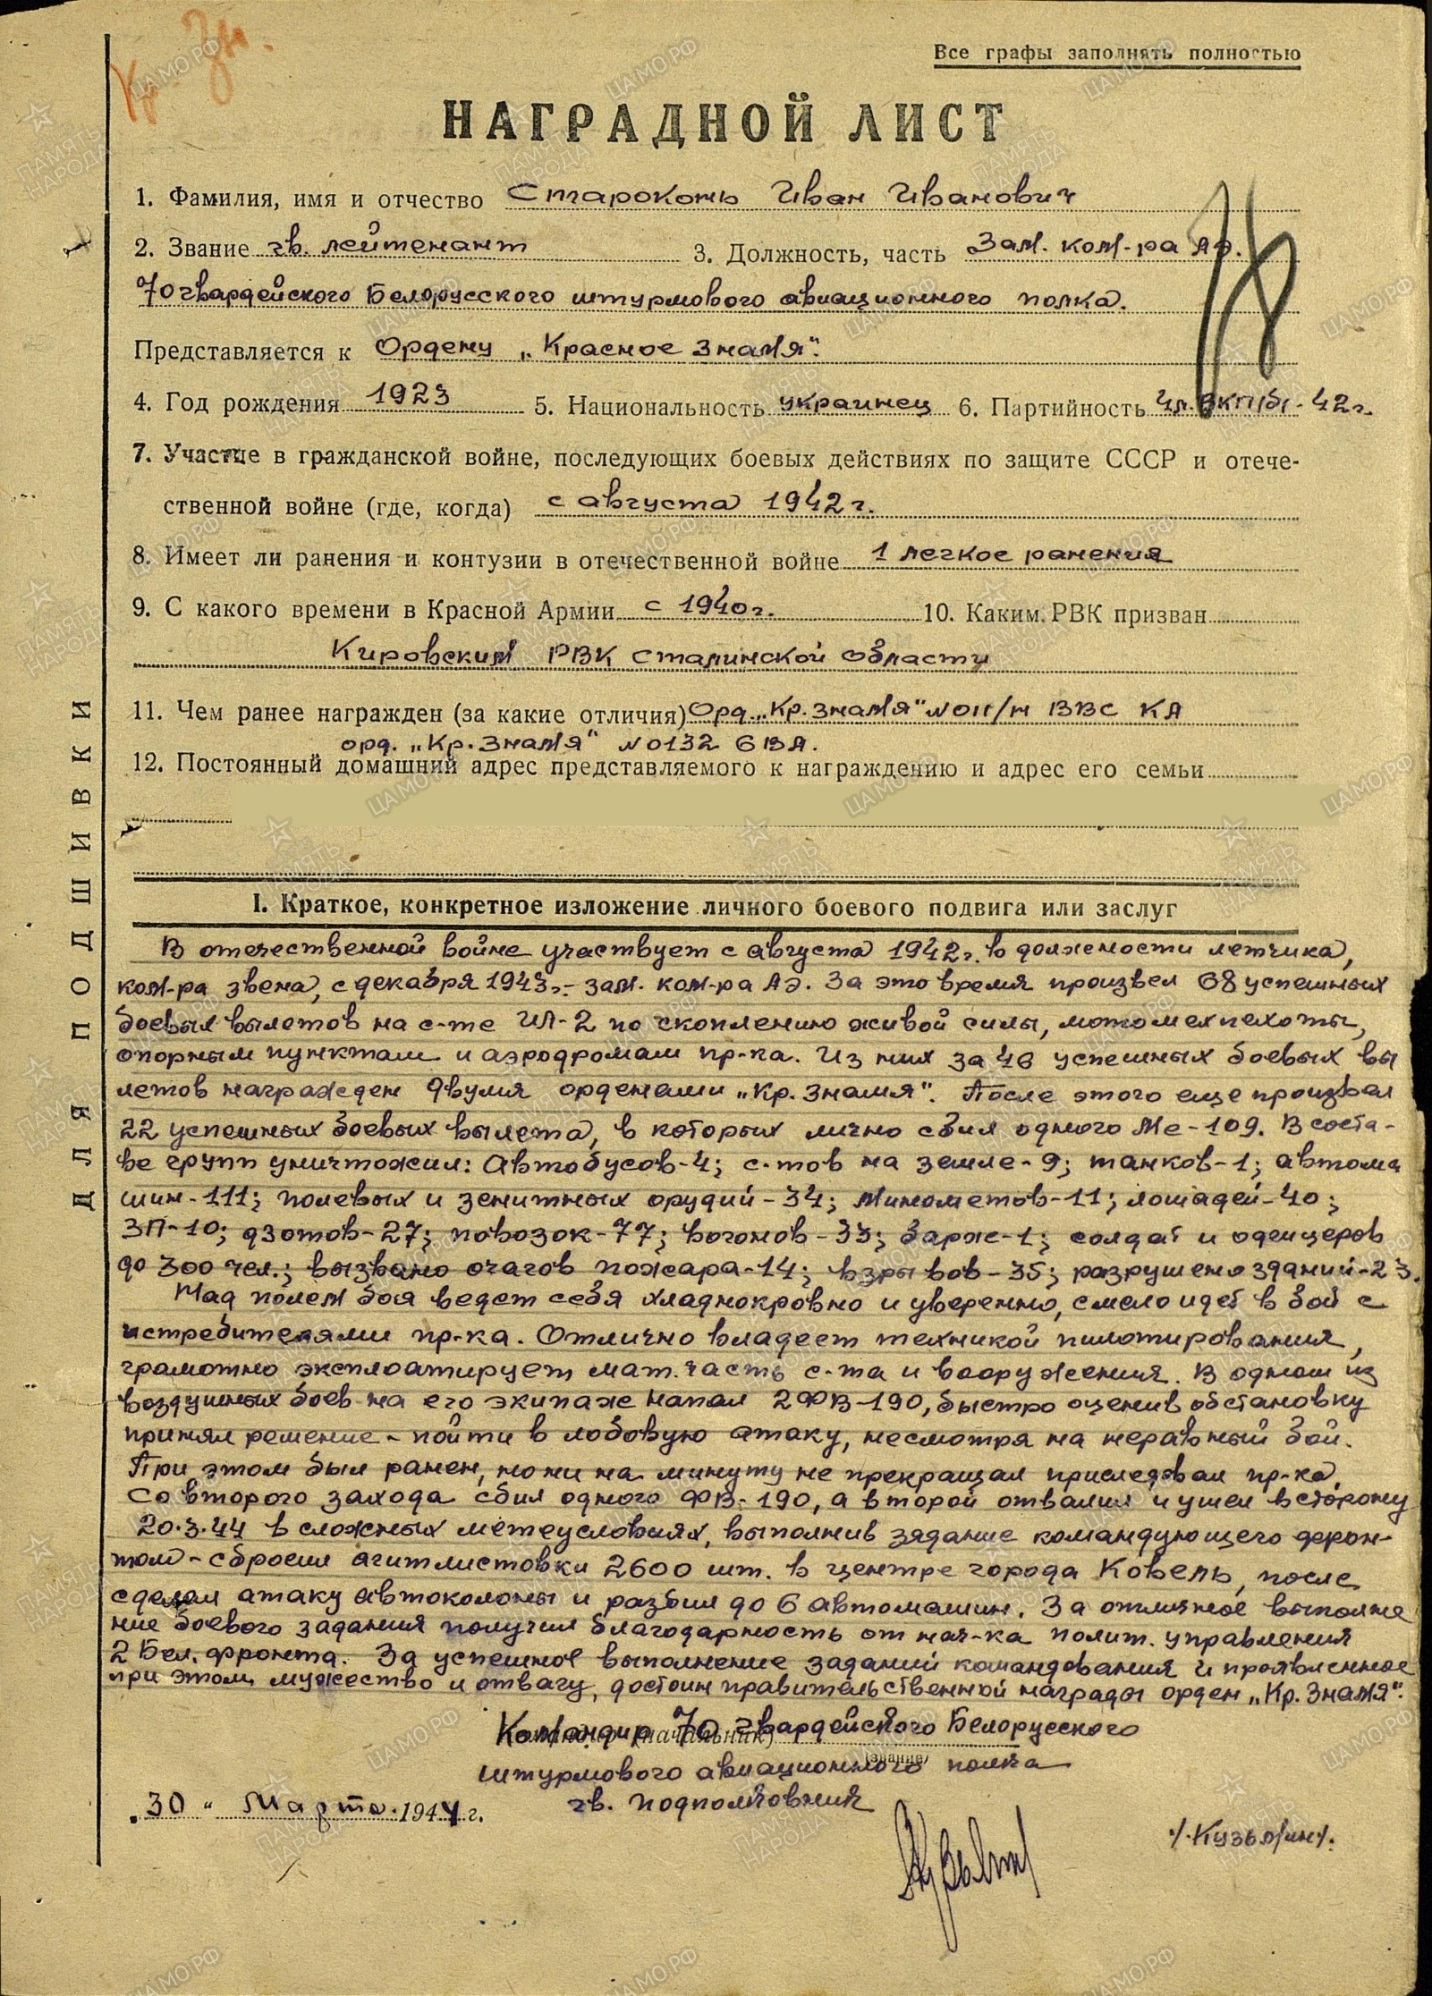 Кр. Зн.
Все графы заполнять полностью
НАГРАДНОЙ ЛИСТ
1. Фамилия, имя и отчество Староконь Иван Иванович
2. Звание гв. лейтенант 3. Должность, часть Зам. ком-ра АЭ.
70 гвардейского Белорусского штурмового авиационного полка.
Представляется к Ордену „Красное Знамя".
4. Год рождения 1923 5. Национальность украинец 6. Партийность чл. ВКП/б/ - 42 г.
7. Участие в гражданской войне, последующих боевых действиях по защите СССР и отече-
ственной войне (где, когда) с августа 1942 г.
8. Имеет ли ранения и контузии в отечественной войне 1 легкое ранения
9. С какого времени в Красной Армии с 1940 г. 10. Каким РВК призван
Кировским РВК Сталинской области
11. Чем ранее награжден (за какие отличия) Орд. „Кр. Знамя" №011/н ВВС КА
орд. „Кр. Знамя" №0132 6 ВА.
12. Постоянный домашний адрес представляемого к награждению и адрес его семьи
ДЛЯ ПОДШИВКИ
I. Краткое, конкретное изложение личного боевого подвига или заслуг
В отечественной войне участвует с августа 1942 г. в должности летчика,
ком-ра звена, с декабря 1943 г. - зам. ком-ра АЭ. За это время произвел 68 успешных
боевых вылетов на с-те ИЛ-2 по скоплению живой силы, мотомехпехоты,
опорным пунктам и аэродромам пр-ка. Из них за 46 успешных боевых вы
летов награжден двумя орденами „Кр. Знамя". После этого еще произвел
22 успешных боевых вылета, в которых лично сбил одного Ме-109. В соста-
ве групп уничтожил: Автобусов-4; с-тов на земле-9; танков-1; автома
шин-111; полевых и зенитных орудий-34; минометов-11; лошадей-40;
ЗП-10; дзотов-27; повозок-77; вогонов-33; барж-1; солдат и офицеров
до 300 чел.; вызвано очагов пожара-14; взрывов-35; разрушено зданий-23.
Над полем боя ведет себя хладнокровно и уверенно, смело идет в бой с
истребителями пр-ка. Отлично владеет техникой пилотирования,
грамотно эксплоатирует мат. часть с-та и вооружения. В одном из
воздушных боев на его экипаж напал 2 ФВ-190, быстро оценив обстановку
принял решение - пойти в лобовую атаку, несмотря на неравный бой.
При этом был ранен, но ни на минуту не прекращал приследовал пр-ка,
со второго захода сбил одного ФВ-190, а второй отвалил и ушел в сторону
20.3.44 в сложных метеусловиях, выполнив задание командующего фрон-
том - сбросил агитлистовки 2600 шт. в центре города Ковель, после
сделал атаку автоколоны и разбил до 6 автомашин. За отличное выполне
ние боевого задания получил благодарность от нач-ка полит. управления
2 Бел. фронта. За успешное выполнение заданий командования и проявленное
при этом мужество и отвагу, достоин правительственной награды орден „Кр. Знамя".
Командир 70 гвардейского Белорусского
(звание)
штурмового авиационного полка
гв. подполковник
„30" Марта 1944 г.
/Кузьмин/.